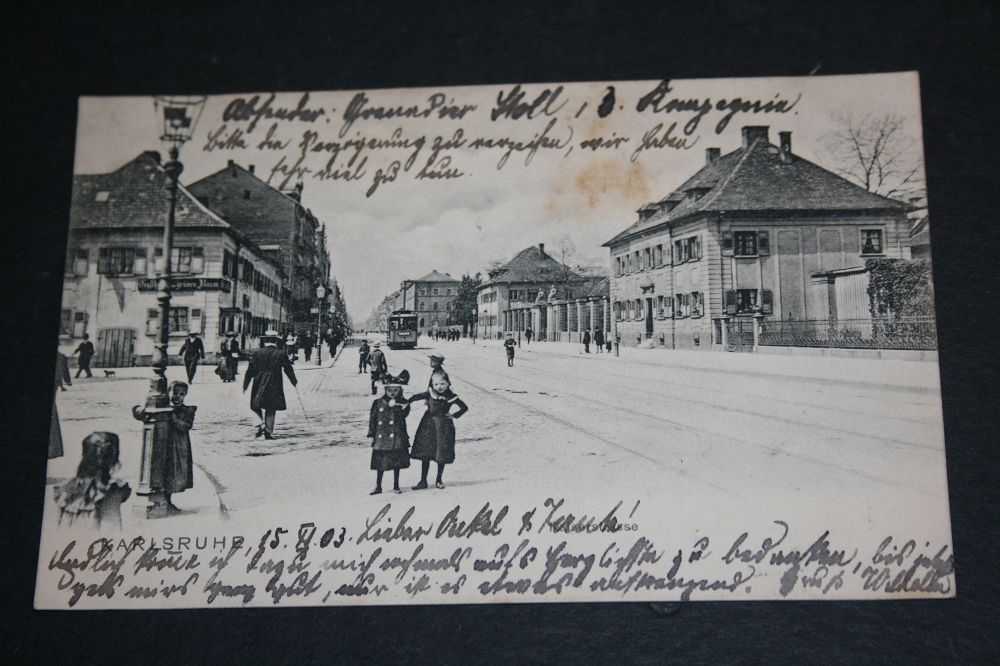 Absender: Grenadier Stoll, 3. Kompagnie.
Bitte die Verzögerung zu verzeihen, wir haben
sehr viel zu tun.
grünen Baum
KARLSRUHE, 15. VI. 03. Lieber Onkel &
Kaiserstrasse
Endlich komme ich dazu mich nochmals aufs Herzlichste zu bedanken, bis jetzt
gehts mirs ganz gut, nur ist es etwas anstrengend. Gruß Wilhelm